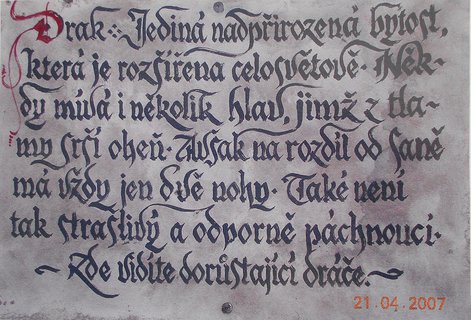 Drak · Jediná nadpřirozená bytost,
která je rozšířena celosvětově · Něk-
dy mívá i několik hlav, jimž z tla-
my srší oheň · Avšak na rozdíl od saně
má vždy jen dvě nohy · Také není
tak strašlivý a odporně páchnoucí ·
~ Zde vidíte dorůstající dráče. ~
21.04.2007